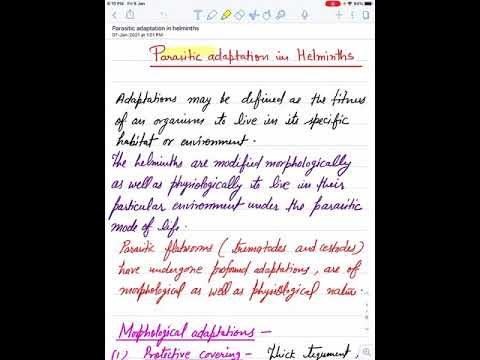 6:10 PM Fri 8 Jan
84%
Parasitic adaptation in helminths
07-Jan-2021 at 1:01 PM
Parasitic adaptation in Helminths
Adaptations may be defined as the fitness
of an organisms to live in its specific
habitat or environment.
The helminths are modified morphologically
as well as physiologically to live in their
particular environment under the parasitic
mode of life.
Parasitic flatworms (trematodes and cestodes)
have undergone profound adaptations, are of
morphological as well as physiological nature.
Morphological adaptations -
(1) Protective covering - Thick tegument,